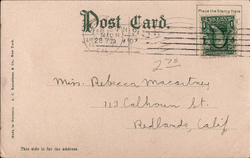 Post Card.
Place the Stamp Here
2 70
Miss. Rebecca Macartney
113 Calhoun St.
Redlands, Calif
This side is for the address.